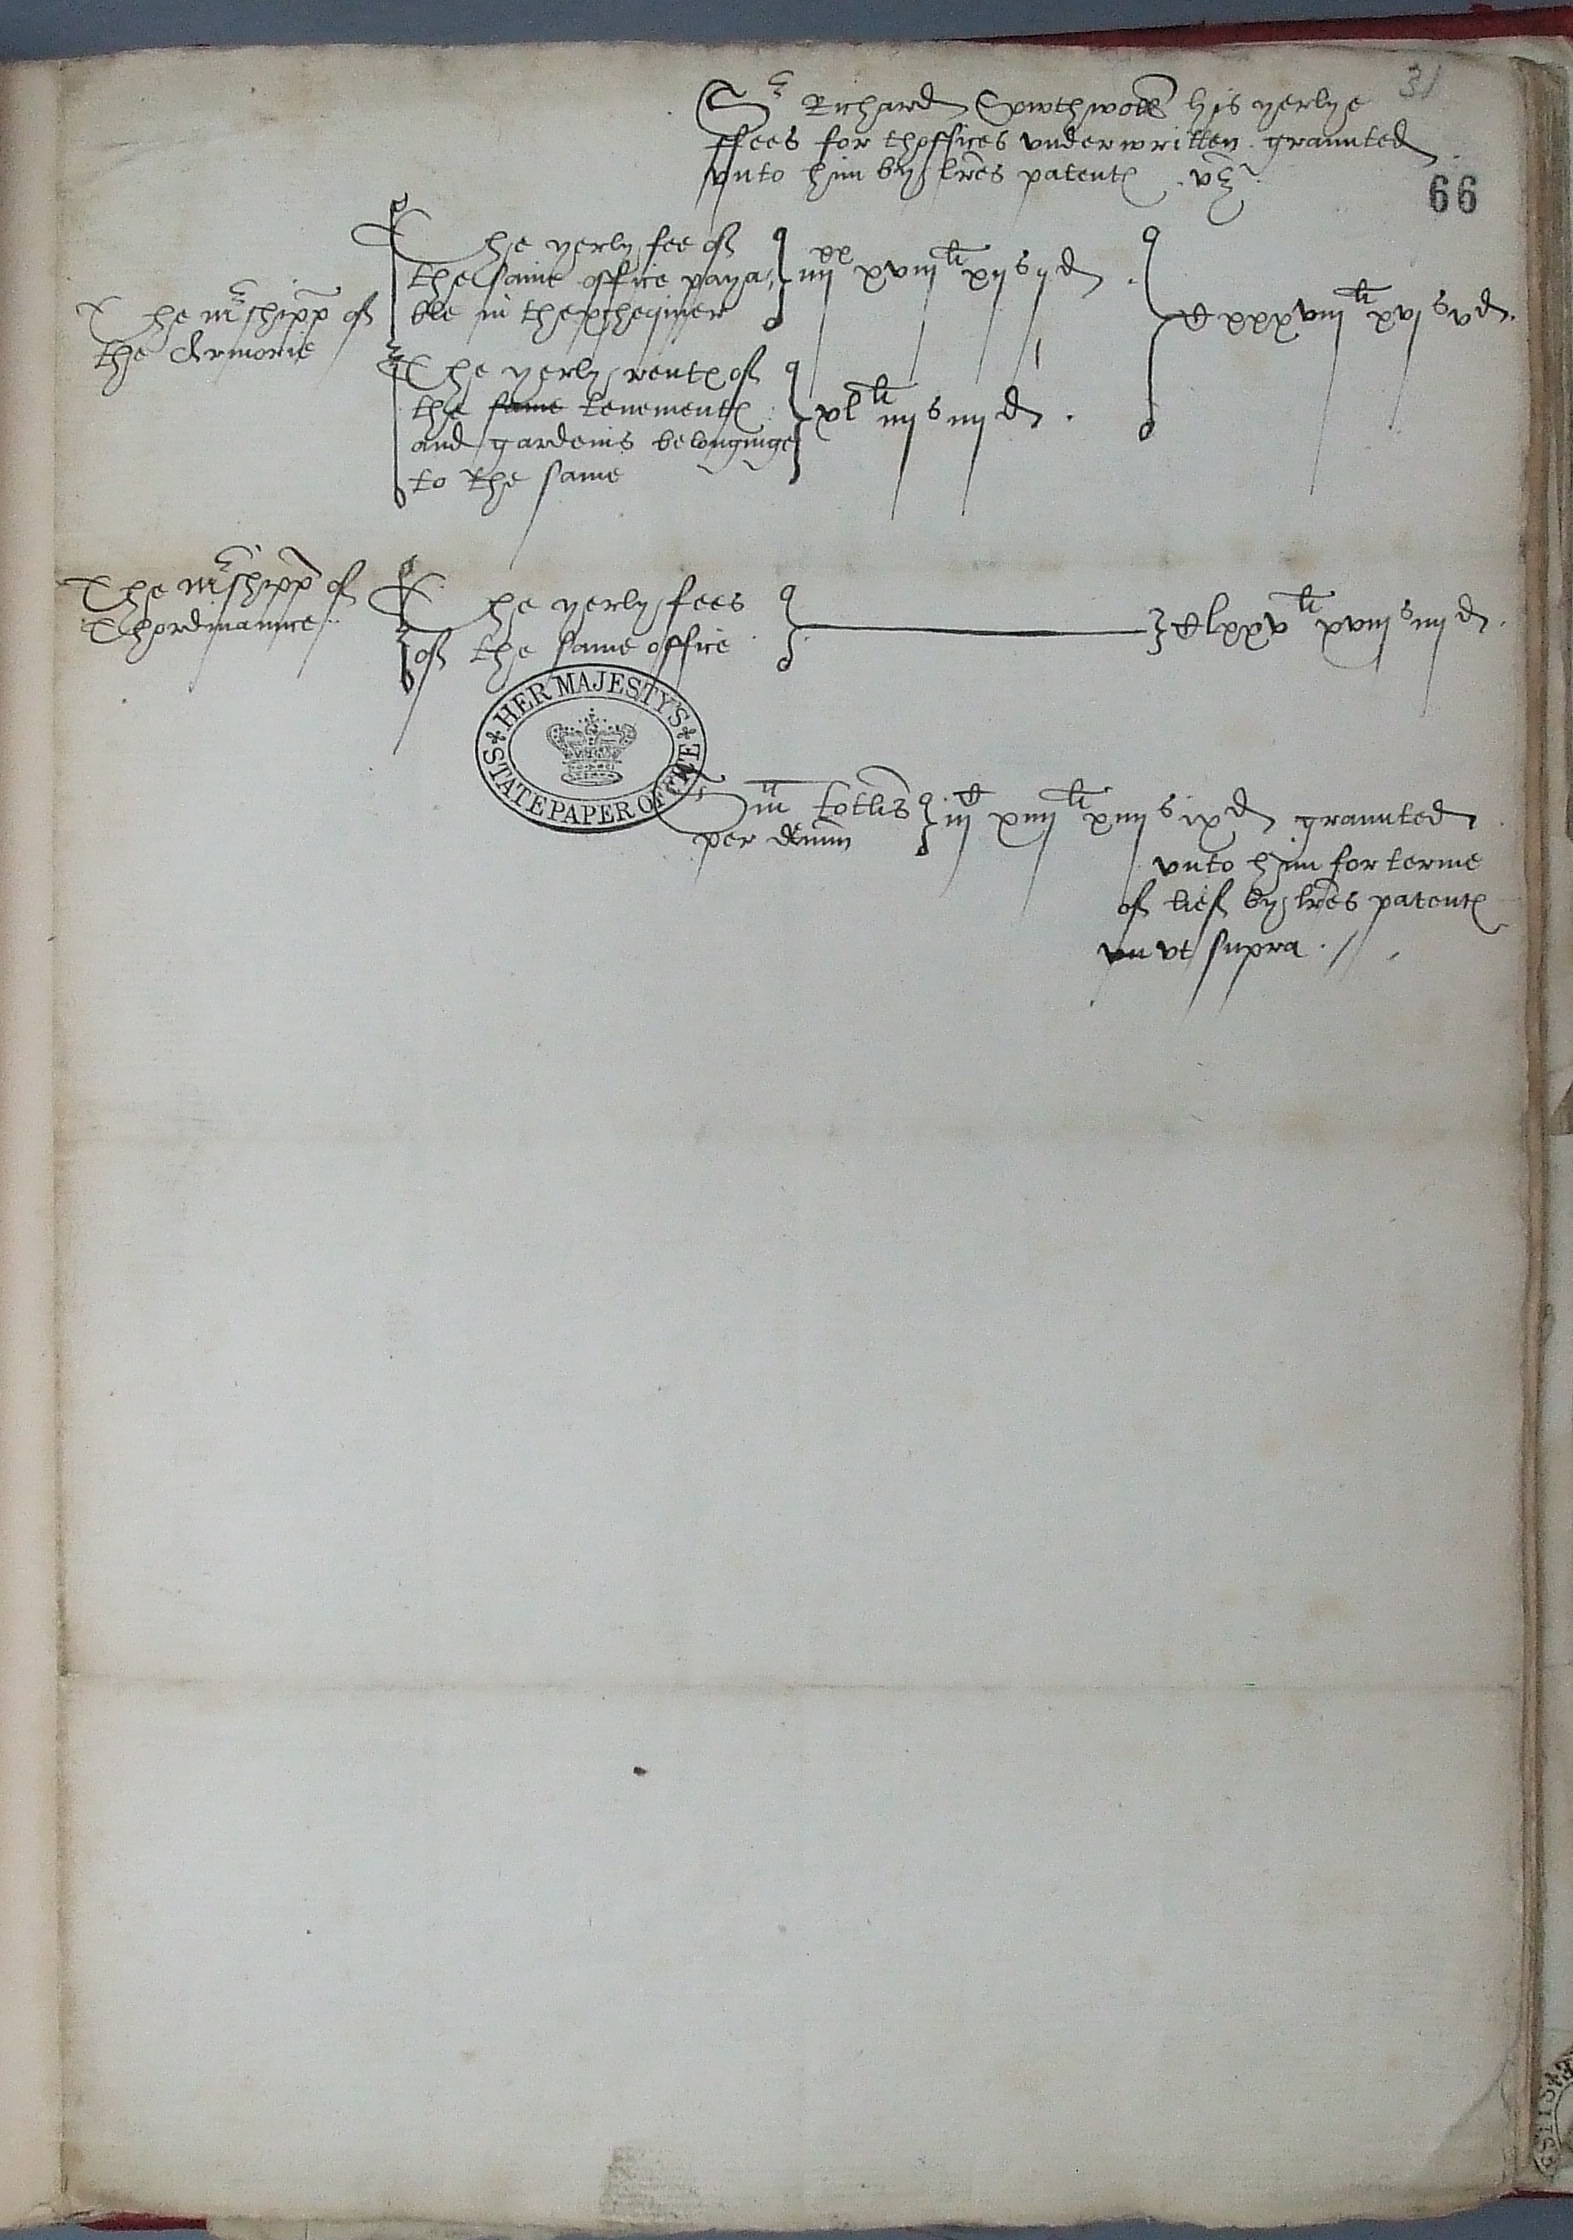 31
Sr Richard Sowthwell his yerlye
ffees for thoffices underwritten graunted
vnto him by lres patent vz
66
The mrshipp of
the Armorie
The yerly fee of
the same office paya
ble in thexchequier
iiijxx xviijli xijs ijd
The yerly rent of
the same tenement
and gardeins belonginge
to the same
xlli iiijs iiijd
Cxxxviijli xvjs vd
The mrshipp of
Thordinaunce
The yerly fees
of the same office
Clxxvli xviijs iiijd
HER MAJESTY'S STATE PAPER OFFICE
Sm totlis
per Annm
iijC xiiijli xiiijs ixd graunted
vnto him for terme
of lief by lres patent
vn vt supra